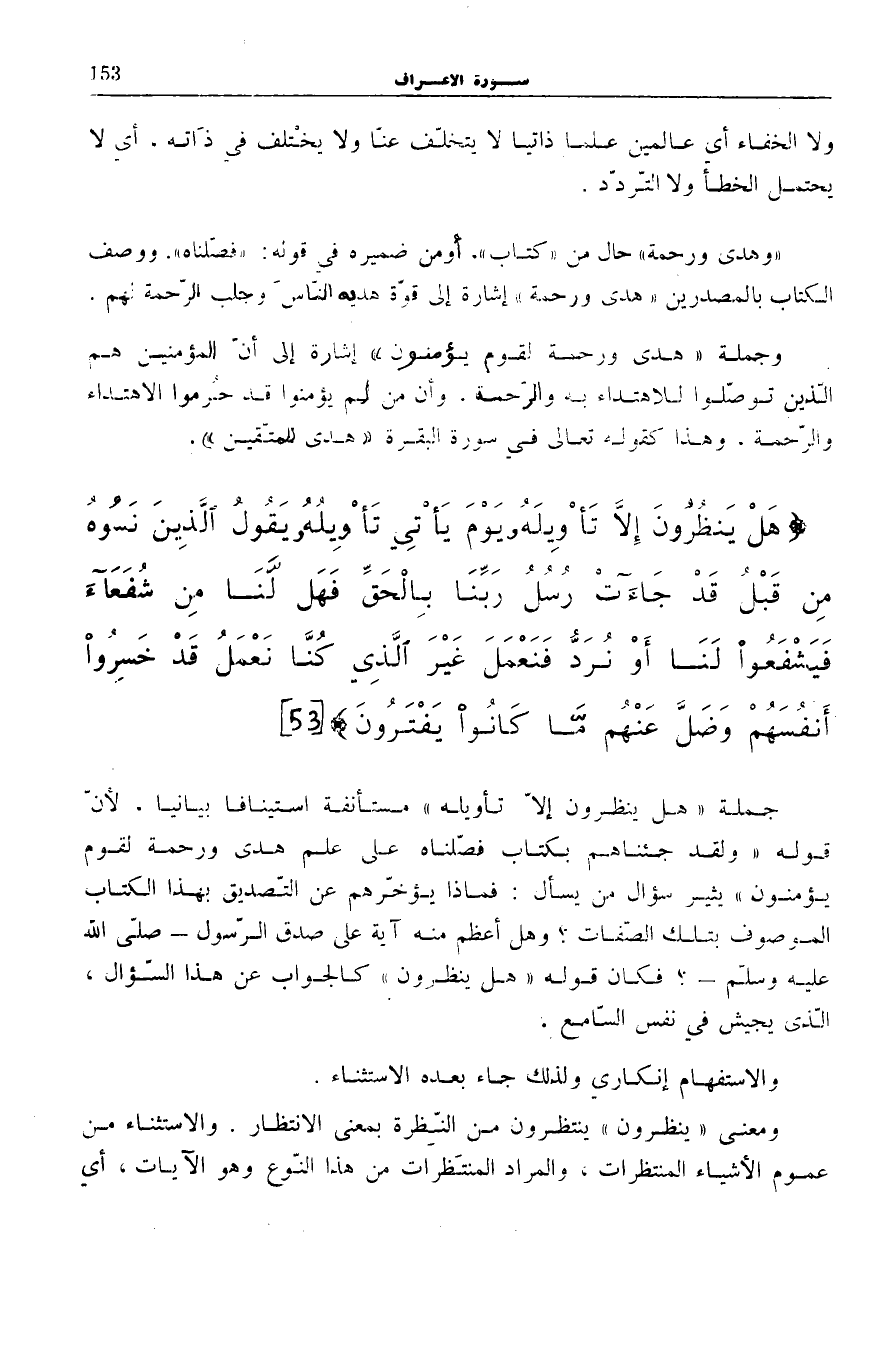 153
ســورة الاعــراف
ولا الخفاء أي عالمين علما ذاتيا لا يتخلّف عنّا ولا يختلف في ذاته . أي لا
يحتمل الخطأ ولا التّردّد .
«وهدى ورحمة» حال من «كتاب». أومن ضميره في قوله: «فصّلناه». ووصف
الكتاب بالمصدرين « هدى ورحمة » إشارة إلى قوّة هديه النّاس وجلب الرّحمة لهم .
وجملة « هدى ورحمة لقوم يؤمنون » إشارة إلى أنّ المؤمنين هم
الّذين توصّلوا للاهتداء به والرّحمة . وأن من لم يؤمنوا قد حُرموا الاهتداء
والرّحمة . وهذا كقوله تعالى في سورة البقرة « هدى للمتّقين » .
﴿هَلْ يَنظُرُونَ إِلاَّ تَأْوِيلَهُۥ يَوْمَ يَأْتِي تَأْوِيلُهُۥ يَقُولُ ٱلَّذِينَ نَسُوهُ
مِن قَبْلُ قَدْ جَآءَتْ رُسُلُ رَبِّنَا بِالْحَقِّ فَهَل لَّنَا مِن شُفَعَآءَ
فَيَشْفَعُواْ لَنَا أَوْ نُرَدُّ فَنَعْمَلَ غَيْرَ ٱلَّذِي كُنَّا نَعْمَلُ قَدْ خَسِرُواْ
أَنفُسَهُمْ وَضَلَّ عَنْهُم مَّا كَانُواْ يَفْتَرُونَ﴾[53]
جملة « هل ينظرون إلاّ تأويله » مستأنفة استينافا بيانيا . لأنّ
قوله « ولقد جئناهم بكتاب فصّلناه على علم هدى ورحمة لقوم
يؤمنون » يثير سؤال من يسأل : فماذا يؤخّرهم عن التّصديق بهذا الكتاب
الموصوف بتلك الصّفات ؟ وهل أعظم منه آية على صدق الرّسول – صلّى الله
عليه وسلّم – ؟ فكان قوله « هل ينظرون » كالجواب عن هذا السّؤال ،
الّذى يجيش في نفس السّامع .
والاستفهام إنكاري ولذلك جاء بعده الاستثناء .
ومعنى « ينظرون » ينتظرون من النّظرة بمعنى الانتظار . والاستثناء من
عموم الأشياء المنتظرات ، والمراد المنتَظرات من هذا النّوع وهو الآيات ، أي